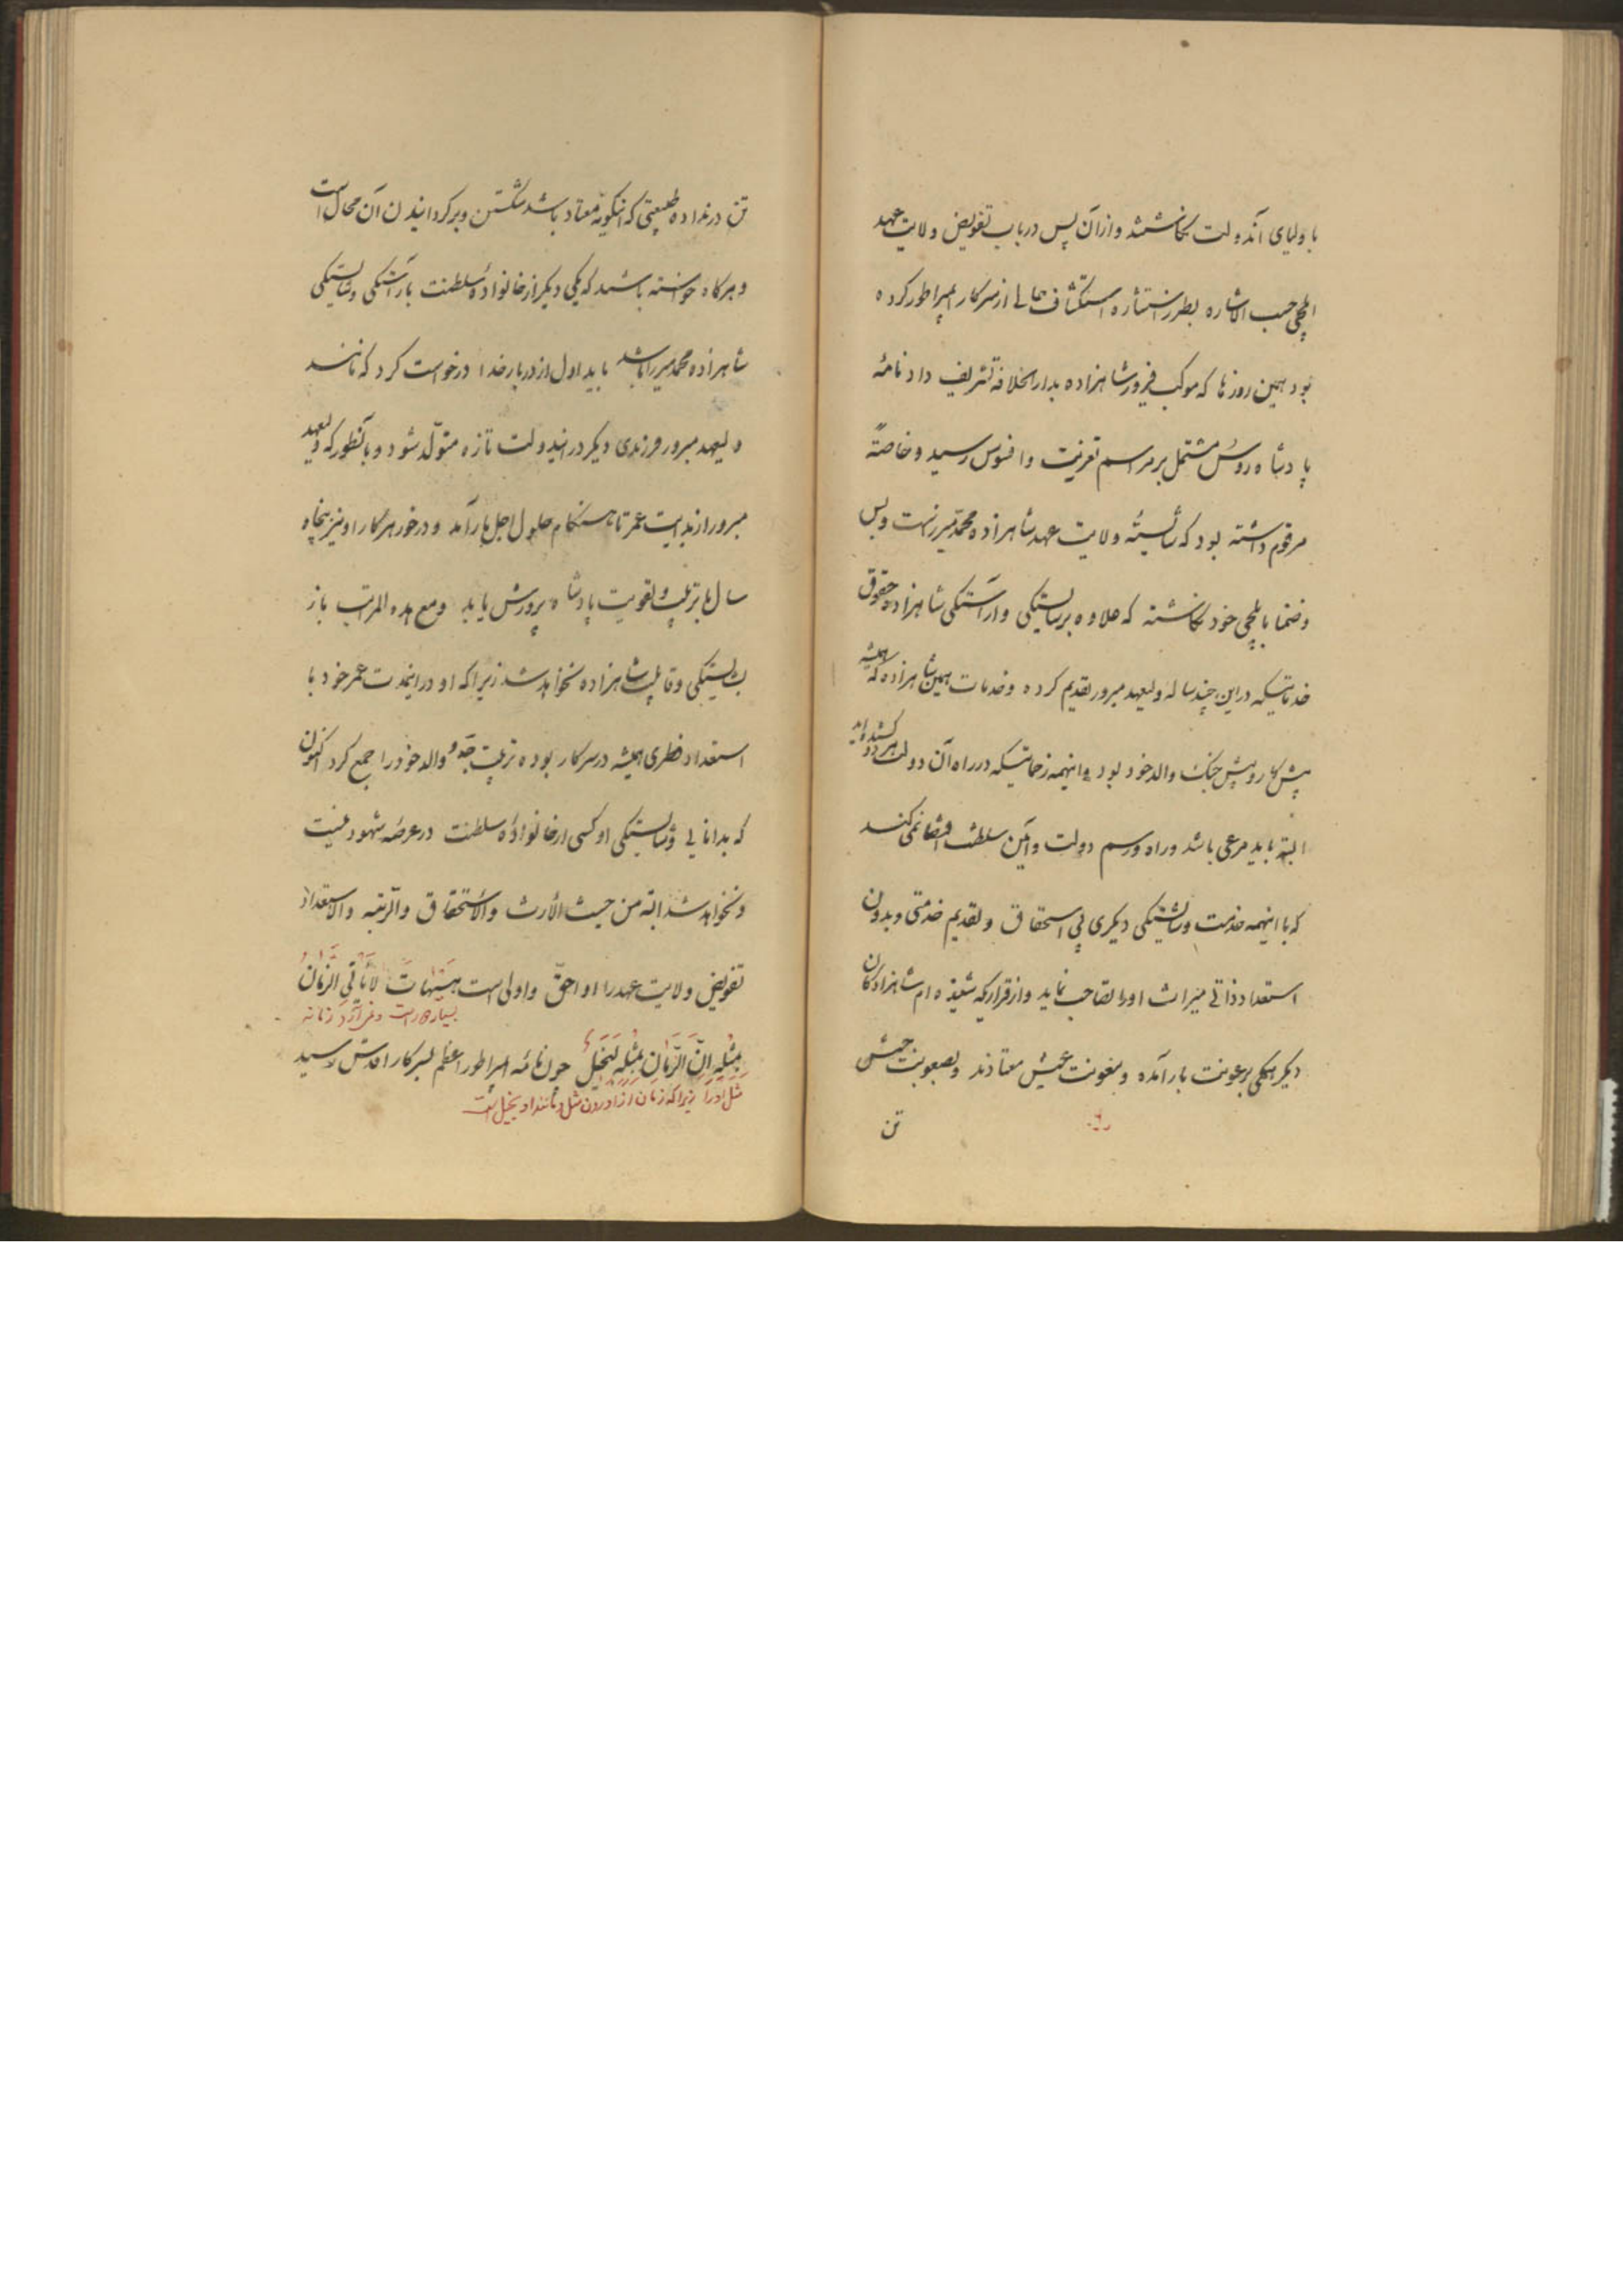 با ولیای آندولت نکاشتند و از آن پس در باب تفویض ولایت عهد
ایلچی حسب الاشاره بطرز استشاره استکشاف حالی از سرکار امپراطور کرده
بود همین روزها که موکب فیروز شاهزاده بدار الخلافه تشریف داد نامهٔ
پادشاه روس مشتمل بر مراسم تعزیت و افسوس رسید و خاصةً
مرقوم داشته بود که شایستهٔ ولایت عهد شاهزاده محمد میرزاست و بس
و ضمنا با یلچی خود نکاشته که علاوه بر شایستکی و اراستکی شاهزاده حقوق
خدماتیکه در این چند ساله ولیعهد مبرور تقدیم کرده و خدمات همین شاهزاده که همیشه
پیش کار و پیش جنک والد خود بود و اینهمه زحماتیکه در راه آن دولت هر دو کشیده اند
البته باید مرعی باشد و راه و رسم دولت و آئین سلطنت اقتضا نمی کند
که با اینهمه خدمت و شایستکی دیکری بی استحقاق و تقدیم خدمتی و بدون
استعداد ذاتی میراث اورا تصاحب نماید و از قراریکه شنیده ام شاهزادکان
دیکر همکی برعونت بار آمده و بنعومت عیش معتادند و بصعوبت جیش
تن
تن در نداده طبیعتی که اینکونه معتاد باشد شکستن و برکردانیدن آن محال است
و هرکاه خواسته باشید که یکی دیکر از خانوادهٔ سلطنت باراستکی و شایستکی
شاهزاده محمد میرزا باشد باید اول از دربار خدا درخواست کرد که مانند
ولیعهد مبرور فرزندی دیکر در ایندولت تازه متولّد شود و بآنطور که ولیعهد
مبرور از بدایت عمر تا هنکام حلول اجل بار آمد و در خور هر کار او نیز پنجاه
سال با تربیت و تقویت پادشاه پرورش یابد و مع هده المراتب باز
بشایستکی و قابلیت شاهزاده نخواهد شد زیرا که او در اینمدت عمر خود با
استعداد فطری همیشه در سرکار بوده تربیت جدّ و والد خود را جمع کرد اکنون
که بدانایی و شایستکی او کسی از خانوادهٔ سلطنت در عرصهٔ شهود نیست
و نخواهد شد البته من حیث الأرث والأستحقاق والرّتبه والاستعداد
تفویض ولایت عهد را او احقّ و اولی است هَیهَاتَ لَا یَأتی الزَّمَانُ
بسیار دور است و نمی آورد زمانه
بِمِثْلِهِ اِنَّ الزَّمَانَ بِمِثْلِهِ لَبَخِیلٌ چون نامهٔ امپراطور اعظم بسرکار اقدس رسید
مثل او را زیرا که زمان از آوردن مثل و مانند او بخیل است